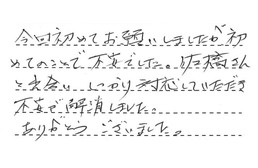 今回初めてお願いしましたが初
めてのことで不安でした。佐橋さん
と出会い、しっかり対応していただき
不安が解消しました。
ありがとうございました。